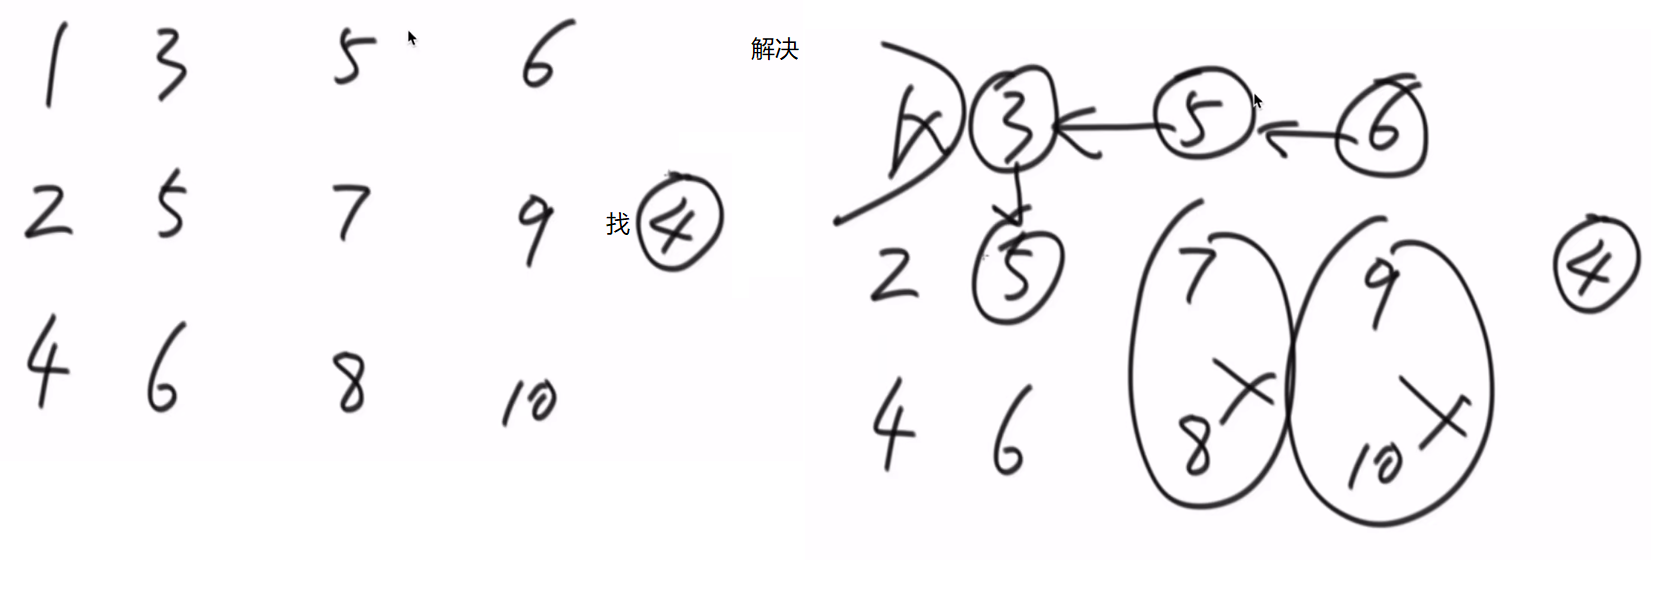 1 3 5 6
2 5 7 9 找 4
4 6 8 10
解决
1 3 5 6
2 5 7 9 4
4 6 8 10